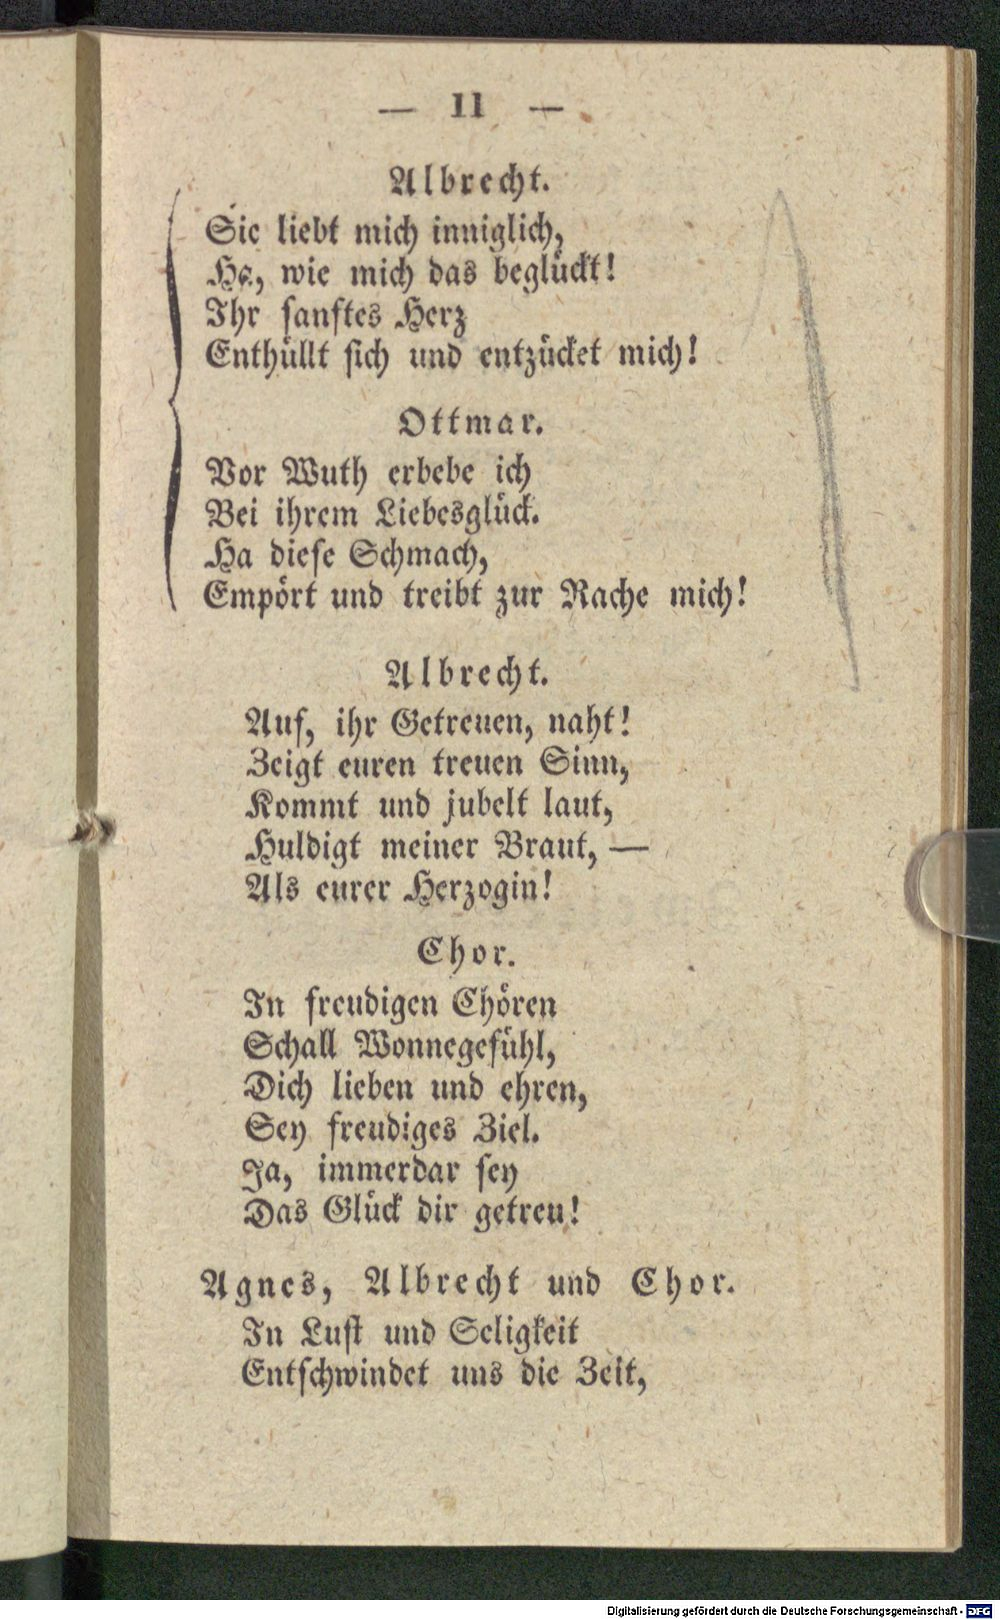 — 11 —
Albrecht.
Sie liebt mich inniglich,
Ha, wie mich das beglückt!
Ihr sanftes Herz
Enthüllt sich und entzücket mich!
Ottmar.
Vor Wuth erbebe ich
Bei ihrem Liebesglück.
Ha diese Schmach,
Empört und treibt zur Rache mich!
Albrecht.
Auf, ihr Getreuen, naht!
Zeigt euren treuen Sinn,
Kommt und jubelt laut,
Huldigt meiner Braut, —
Als eurer Herzogin!
Chor.
In freudigen Chören
Schall Wonnegefühl,
Dich lieben und ehren,
Sey freudiges Ziel.
Ja, immerdar sey
Das Glück dir getreu!
Agnes, Albrecht und Chor.
In Lust und Seligkeit
Entschwindet uns die Zeit,
Digitalisierung gefördert durch die Deutsche Forschungsgemeinschaft - DFG